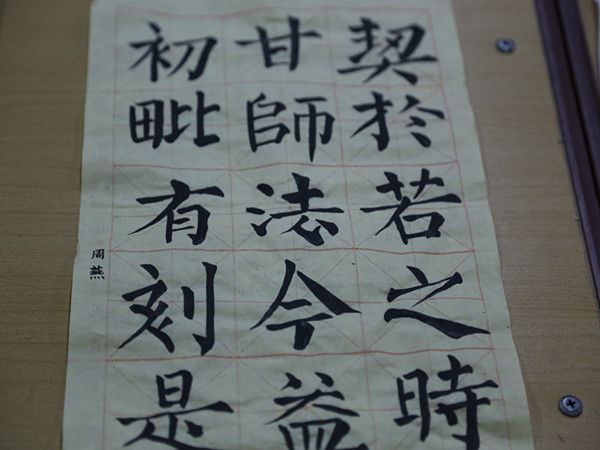 契於若之時
甘師法今益
初毗有刻是
周燕